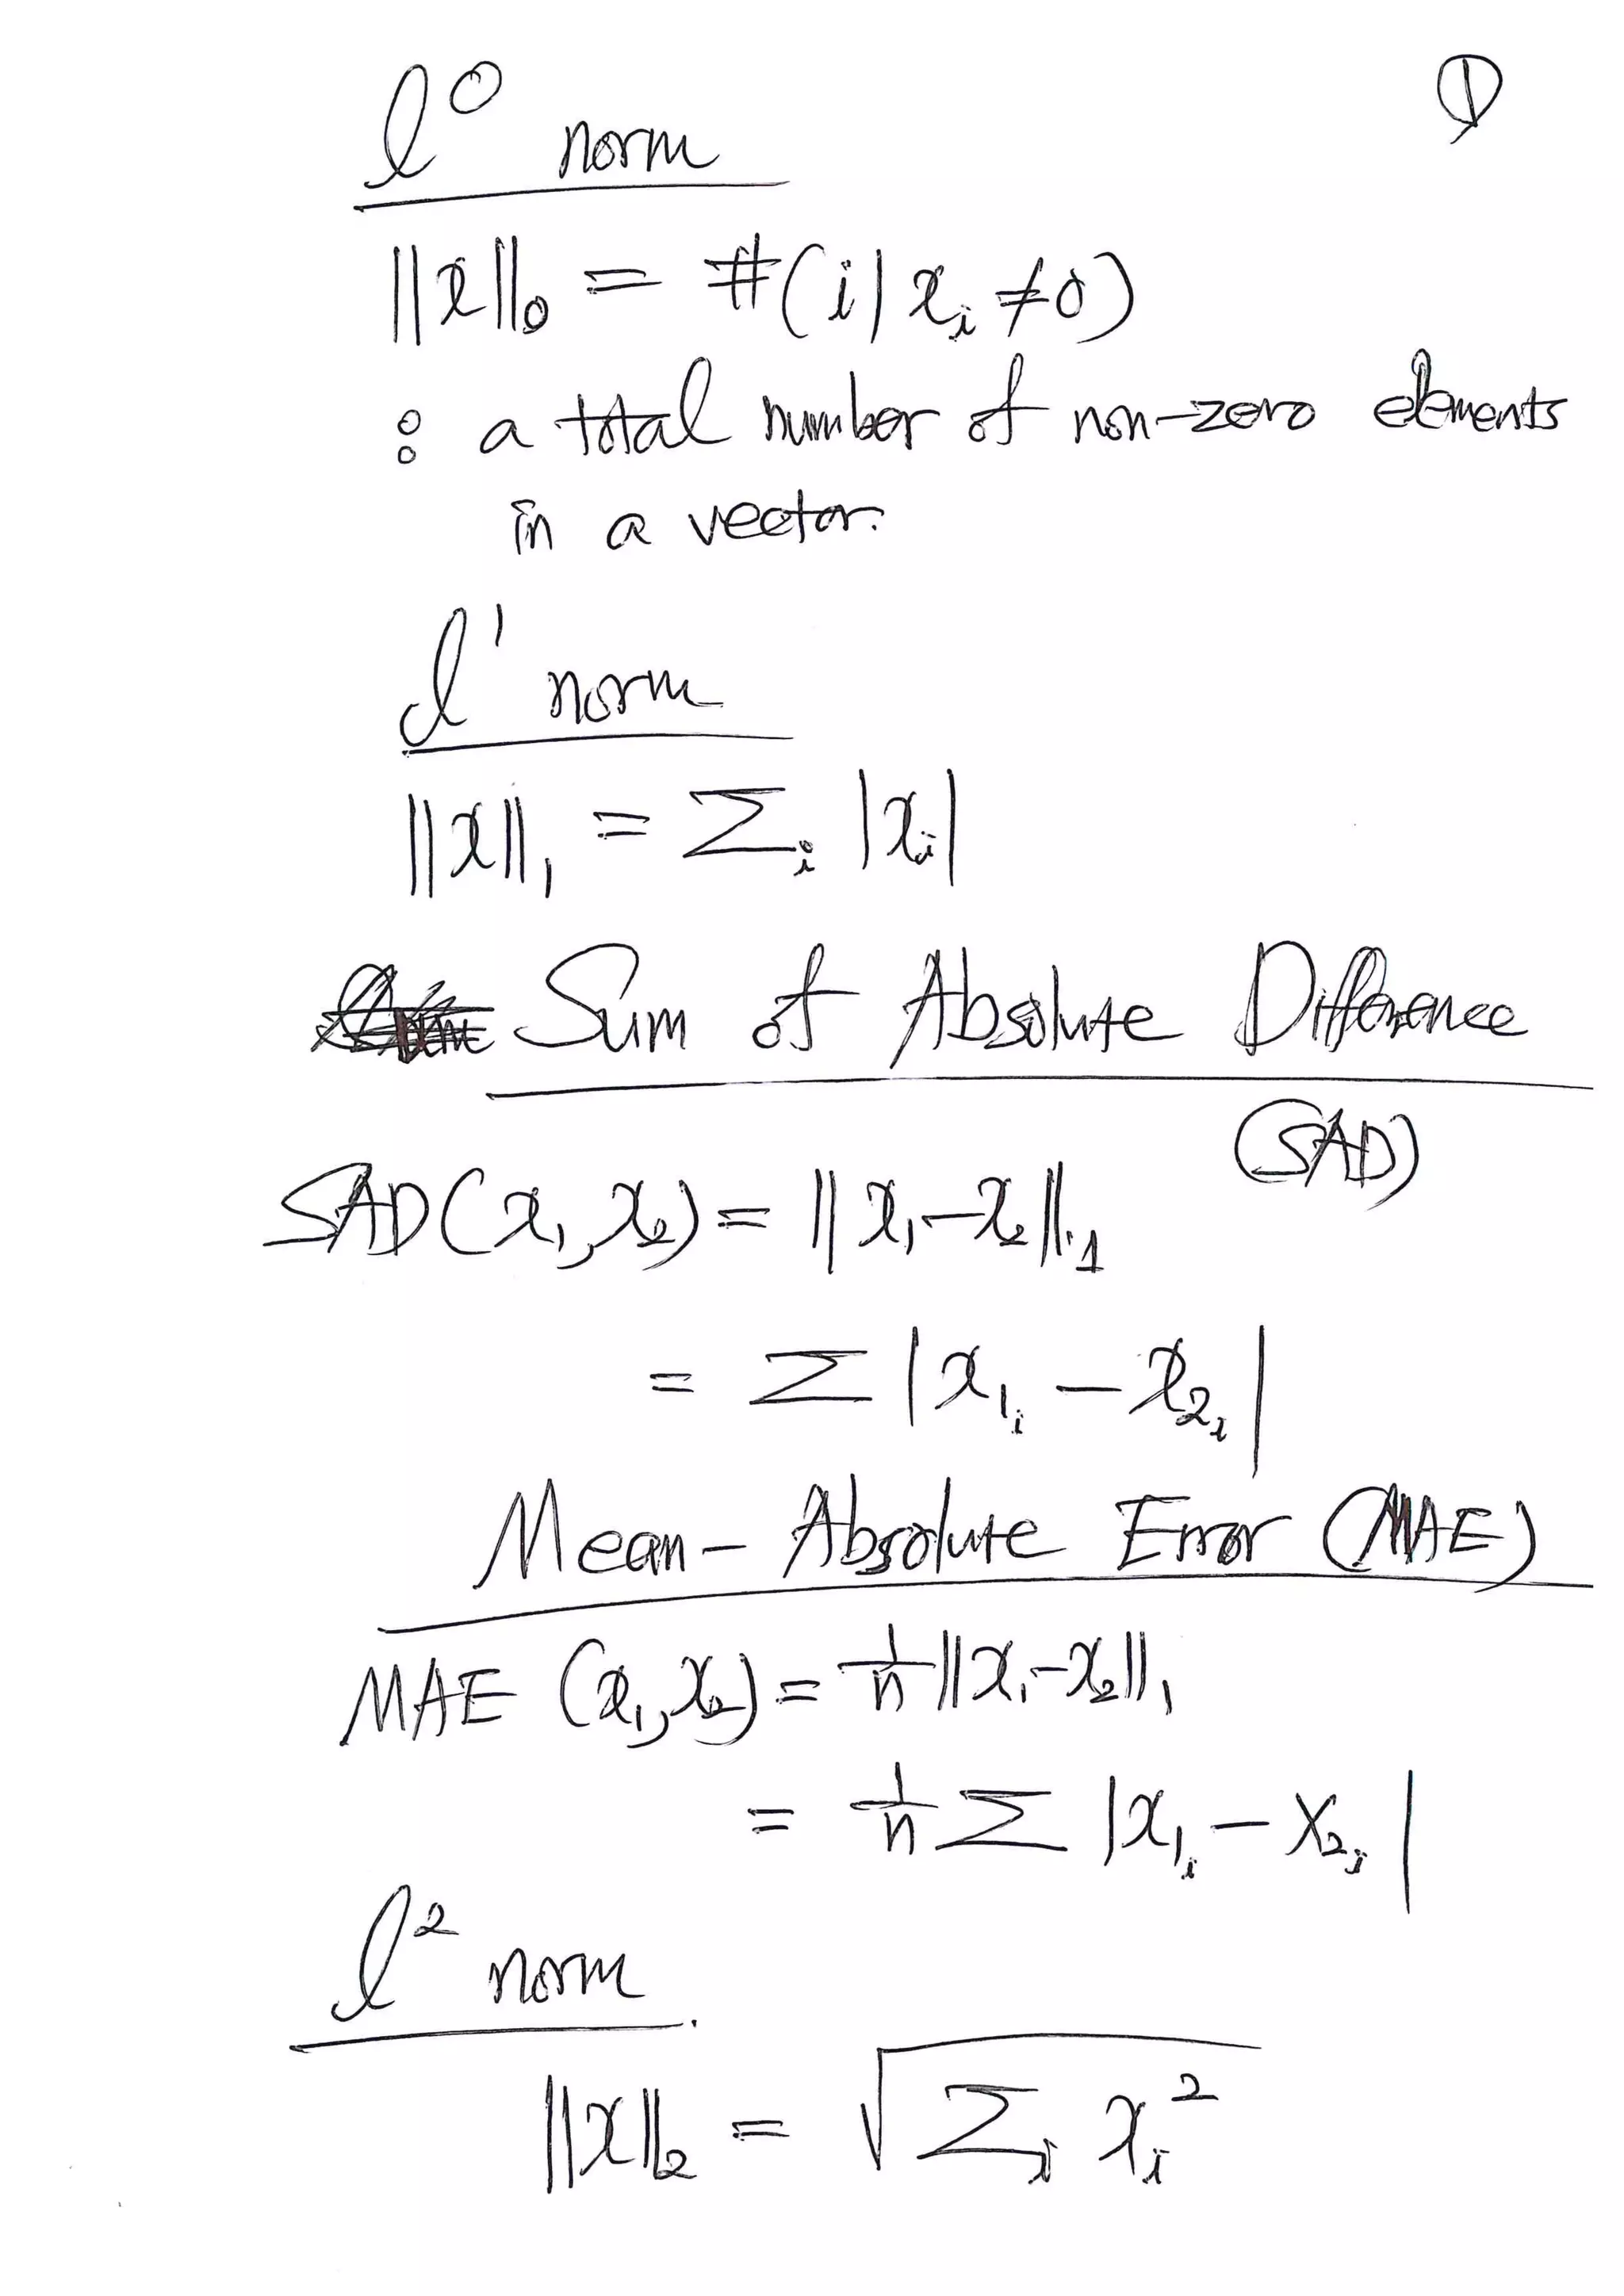 ①
l⁰ norm
||x||₀ = #(i | xᵢ ≠ 0)
: a total number of non-zero elements
in a vector.
l¹ norm
||x||₁ = Σᵢ |xᵢ|
Sum of Absolute Difference
(SAD)
SAD(x₁, x₂) = ||x₁ - x₂||₁
= Σ |x₁ᵢ - x₂ᵢ|
Mean-Absolute Error (MAE)
MAE (x₁, x₂) = 1/n ||x₁ - x₂||₁
= 1/n Σ |x₁ᵢ - x₂ᵢ|
l² norm
||x||₂ = √(Σᵢ xᵢ²)